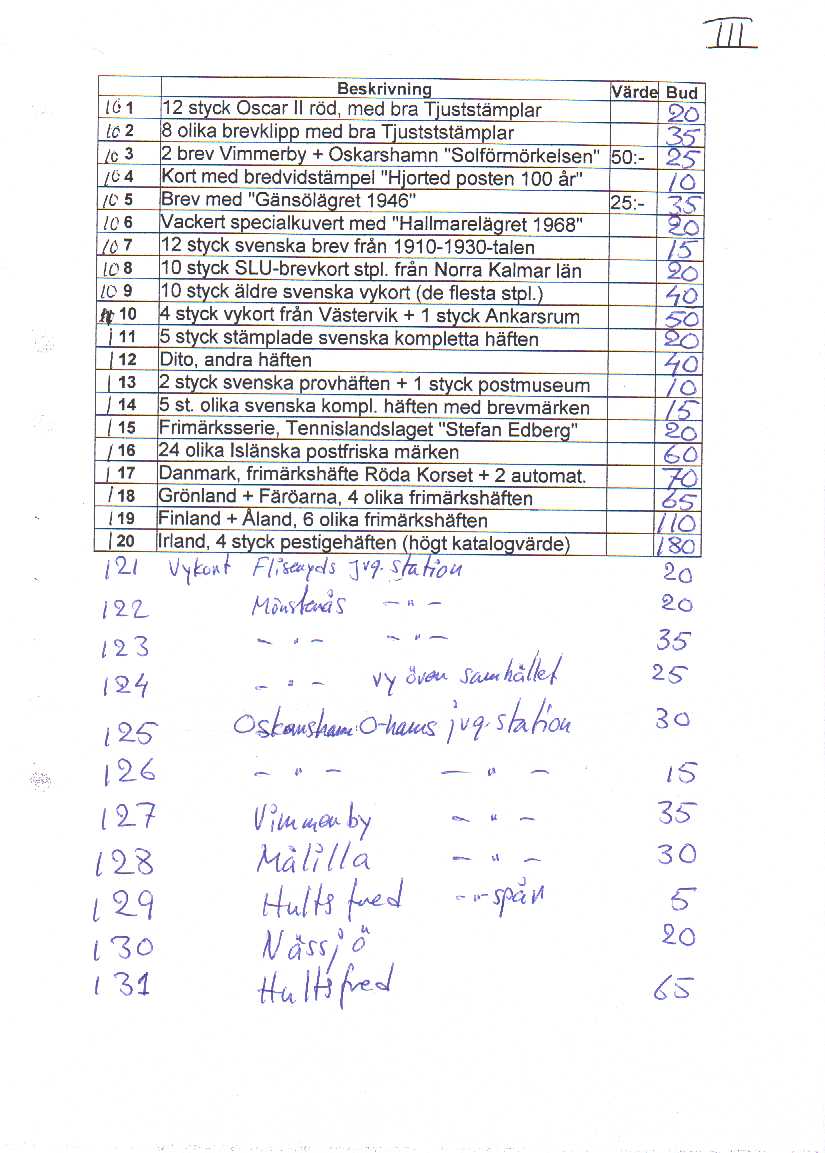 III
Beskrivning Värde Bud
101 12 styck Oscar II röd, med bra Tjuststämplar 20
102 8 olika brevklipp med bra Tjustststämplar 35
103 2 brev Vimmerby + Oskarshamn "Solförmörkelsen" 50:- 25
104 Kort med bredvidstämpel "Hjorted posten 100 år" 10
105 Brev med "Gänsölägret 1946" 25:- 35
106 Vackert specialkuvert med "Hallmarelägret 1968" 20
107 12 styck svenska brev från 1910-1930-talen 15
108 10 styck SLU-brevkort stpl. från Norra Kalmar län 20
109 10 styck äldre svenska vykort (de flesta stpl.) 40
110 4 styck vykort från Västervik + 1 styck Ankarsrum 50
111 5 styck stämplade svenska kompletta häften 20
112 Dito, andra häften 40
113 2 styck svenska provhäften + 1 styck postmuseum 10
114 5 st. olika svenska kompl. häften med brevmärken 15
115 Frimärksserie, Tennislandslaget "Stefan Edberg" 20
116 24 olika Islänska postfriska märken 60
117 Danmark, frimärkshäfte Röda Korset + 2 automat. 70
118 Grönland + Färöarna, 4 olika frimärkshäften 65
119 Finland + Åland, 6 olika frimärkshäften 110
120 Irland, 4 styck pestigehäften (högt katalogvärde) 180
121 Vykort Fliseryds jvg. station 20
122 Mönsterås - " - 20
123 - " - - " - 35
124 - " - vy över samhället 25
125 Oskarshamn O-hamns jvg. station 30
126 - " - - " - 15
127 Vimmerby - " - 35
128 Målilla - " - 30
129 Hultsfred - " - spår 5
130 Nässjö 20
131 Hultsfred 65